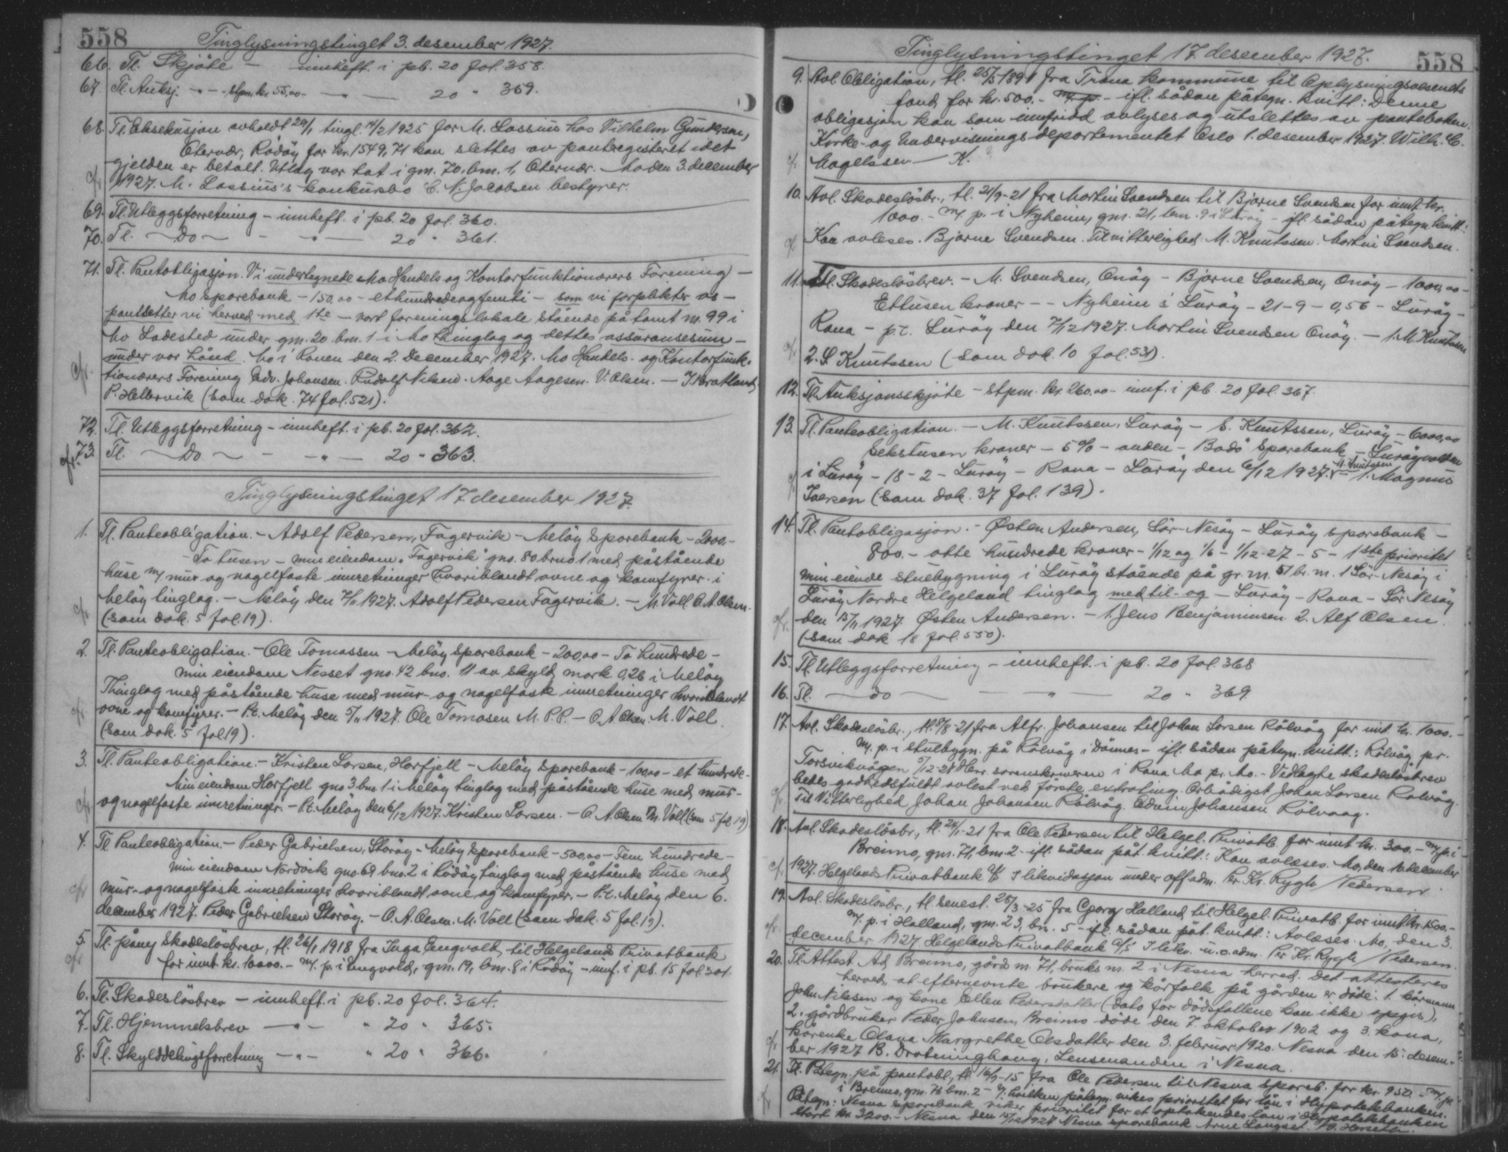 558
Tinglysningstinget 3. desember 1927.
66. Tl. Skjöte — innheft. i pb. 20 fol. 358.
67. Tl. Auksj. — " — stpm. kr. 55,00 — " — 20 " 359.
68. Tl. Eksekusjon avholdt 29/1, tingl. 14/2 1925 for M. Lossius hos Vilhelm Gundersen,
Oternær, Rødöy for kr. 1549,71 kan slettes av panteregisteret idet
gjelden er betalt. Utleg var tat i gm. 70, bnr. 1, Oternær. Mo den 3. december
1927. M. Lossius's konkursbo C. N. Jacobsen bestyrer.
69. Tl. Utleggsforretning — innheft. i pb. 20 fol. 360.
70. Tl. — Do — " — 20 " 361.
71. Tl. Pantobligasjon. Vi undertegnede Mo Handels og Kontorfunktionærers Forening —
Mo Sparebank — 150,00 — ethundredeogfemti — som vi forplikter os —
pantsetter vi herved med 1ste — vort forenings lokale stående på tomt nr. 99 i
Mo Ladested under gm. 20 bnr. 1 i Mo thinglag og dettes assuransesum —
under vor hånd. Mo i Ranen den 2. December 1927. Mo Handels- og Kontorfunk-
tionærers Forening Edv. Johansen. Rudolf Nilsen. Aage Aagesen. V. Olsen. — J. Bratland,
P. Hellervik (som dok. 74 fol. 521).
72. Tl. Utleggsforretning — innheft. i pb. 20 fol. 362.
73. Tl. — Do — " — 20 " 363.
Tinglysningstinget 17. desember 1927.
1. Tl. Panteobligation. — Adolf Pedersen, Fagervik — Melöy Sparebank — 2000,-
To tusen — min eiendom "Fagervik" gno. 80 bruno 1 med påstående
huse m/ mur og nagelfaste innretninger hvoriblandt ovne og komfyrer i
Melöy tinglag. — Melöy den 7/11 1927. Adolf Pedersen Fagervik. — M. Voll O. A. Olsen.
(som dok. 5 fol. 19).
2. Tl. Panteobligation. — Ole Tomassen — Melöy Sparebank — 200,00 — To hundrede —
min eiendom Nesset gno. 42 bno. 11 av skyld mark 0,26 i Melöy
Thinglag med påstående huse med mur- og nagelfaste innretninger hvoriblandt
ovne og komfyrer. — Pt. Melöy den 5/11 1927. Ole Tomasen M. P. P. — O. A. Olsen. M. Voll.
(som dok. 5 fol 19).
3. Tl. Panteobligation. — Kristen Larsen, Horfjell — Melöy Sparebank — 100,00 — et hundrede —
Min eiendom Horfjell gno 3 bno 1 i Melöy tinglag med påstående huse med mur-
og nagelfaste innretninger. — Pt. Melöy den 6/12 1927. Kristen Larsen. — O. A. Olsen M. Voll (som 5 fol. 19)
4. Tl. Panteobligation. — Peder Gabrielsen, Storöy — Melöy Sparebank — 500,00 — Fem hundrede —
min eiendom Nordvik gno 69 bno. 2 i Rödöy tinglag med påstående huse med
mur- og nagelfaste innretninger hvoriblandt ovne og komfyrer. — Pt. Melöy den 6.
december 1927. Peder Gabrielsen Storöy. — O. A. Olsen. M. Voll (som dok. 5 fol. 19).
5. Tl. påny Skadeslösbrev, tl. 26/1 1918 fra Inga Engvolt, til Helgelands Privatbank
for innt. kr. 10000.- m/ p. i Engvold, gm. 19, bnr. 8 i Rödöy — innf. i pb. 15 fol. 301.
6. Tl. Skadeslösbrev — innheft. i pb. 20 fol. 364.
7. Tl. Hjemmelsbrev — " — " 20 " 365.
8. Tl. Skylddelingsforretning — " — " 20 " 366.
Tinglysningstinget 17. desember 1927.
558
9. Avl. Obligation, tl. 25/6 1891 fra Træna kommune til Oplysningsvesenets
fond for kr. 500.- m/ p. - ifl. sådan påtegn. kvitt: Denne
obligasjon kan som innfridd avlyses og utslettes av panteboken.
Kirke- og Undervisningsdepartementet Oslo 1. desember 1927. Wilh. C.
Magelssen
10. Avl. Skadeslösbr., tl. 21/9-21 fra Martin Svendsen til Bjarne Svendsen for innt. kr.
1000.- m/ p. i Nyheim, gm. 21, bnr. 9 i Luröy - ifl. sådan påtegn. kvitt:
Kan avleses. Bjarne Svendsen. Til vitterlighed M. Knutssen. Martin Svendsen.
11. Tl. Skadeslösbrev. — M. Svendsen, Onöy — Bjarne Svendsen, Onöy — 1000,00 —
Ettusen kroner — — Nyheim i Luröy — 21 — 9 — 0,56 — Luröy —
Rana — p.t. Luröy den 7/12 1927. Martin Svendsen Onöy. — 1. M Knutssen
2. S Knutssen (som dok. 10 fol. 531).
12. Tl. Auksjonsskjöte — stpm. kr. 260.00 — innf. i pb. 20 fol. 367.
13. Tl. Panteobligation. — M. Knutssen, Luröy — E. Knutssen, Luröy — 6000,00
Sekstusen kroner — 5 % — anden — Bodö Sparebank — Luröyvollen
i Luröy — 18 — 2 — Luröy — Rana — Luröy den 6/12 1927. M. Knutssen — 1. Magnus
Iversen (som dok. 37 fol. 139).
14. Tl. Pantobligasjon. — Østen Andersen, Sör-Nesöy — Luröy sparebank —
800.- otte hundrede kroner — 1/12 og 1/6 — 1/12-27 — 5 — 1ste prioritet
min eiende stuebygning i Luröy stående på gr. nr. 51 br. nr. 1 Sör-Nesöy i
Luröy Nordre Helgeland tinglag med til- og — Luröy — Rana — Sör-Nesöy
den 15/11 1927 Østen Andersen. — 1. Jens Benjaminsen 2. Alf Olsen.
(som dok 18 fol. 550).
15. Tl. Utleggsforretning — innheft. i pb. 20 fol. 368
16. Tl. — do — " — 20 " 369
17. Avl. Skadeslösbr., tl. 9/8-21 fra Alfr. Johansen til Johan Larsen Rölvåg for innt kr. 1000.-
m/ p. i stuebygn. på Rölvåg i Dönnes - ifl. sådan påtegn. kvitt: Rölvåg pr.
Torsvikvågen 5/12-27 Herr sorenskriveren i Rana Mo pr. Mo. — Vedlagte skadeslösbrev
bedes godhedsfuldt avlest ved förste extrating. Ærbödigst Johan Larsen Rølvåg.
Til Vitterlighed Johan Johansen Rölvåg Edvin Johansen Rölvaag.
18. Avl. Skadeslösbr., tl. 26/11-21 fra Ole Pedersen til Helgel. Privatb. for innt kr. 300.- m/ p. i
Breimo, gm. 71, bnr. 2 - ifl. sådan påt. kvitt: Kan avleses. Mo, den 10 december
1927. Helgelands Privatbank A/S i likvidasjon under off. adm. Pr. Kr. Rygh / Pedersen.
19. Avl. Skadeslösbr., tl. senest. 25/3-25 fra Georg Halland til Helgel. Privatb. for innt kr. 1500.-
m/ p. i Halland, gm. 23, bnr. 5 - ifl. sådan påt. kvitt: Avleses. Mo, den 3.
december 1927 Helgelands Privatbank A/S i likv. u. o. adm. Pr. Kr. Rygh / Pedersen.
20. Tl. Attest. Ad Breimo, gård nr. 71, bruks nr. 2 i Nesna herred. Det attesteres
herved, at efternevnte brukere og kårfolk på gården er döde: 1. kårmann
John Nilssen og kone Ellen Pedersdatter (Dato for dödsfallene kan ikke opgis),
2. gårdbruker Peder Johnsen, Breimo döde den 7. oktober 1902 og 3. kona,
kårenke Olava Margrethe Olsdatter den 3. februar 1920. Nesna den 15. desem-
ber 1927 B. Drotninghaug, Lensmanden i Nesna.
21. Tl. Påtegn. på pantobl., tl. 16/9-15 fra Ole Pedersen til Nesna Spareb. for kr. 950.- m/ p.
i Breimo, gm. 71 bnr. 2 - ifl. hvilken påtegn. vikes prioritet for lån i Hypotekbanken.
Påtegn: Nesna Sparebank viker prioritet for et optakendes lån i Hypotekbanken
stort kr. 3200.- Nesna den 15/12 1927 Nesna Sparebank Arne Langset.